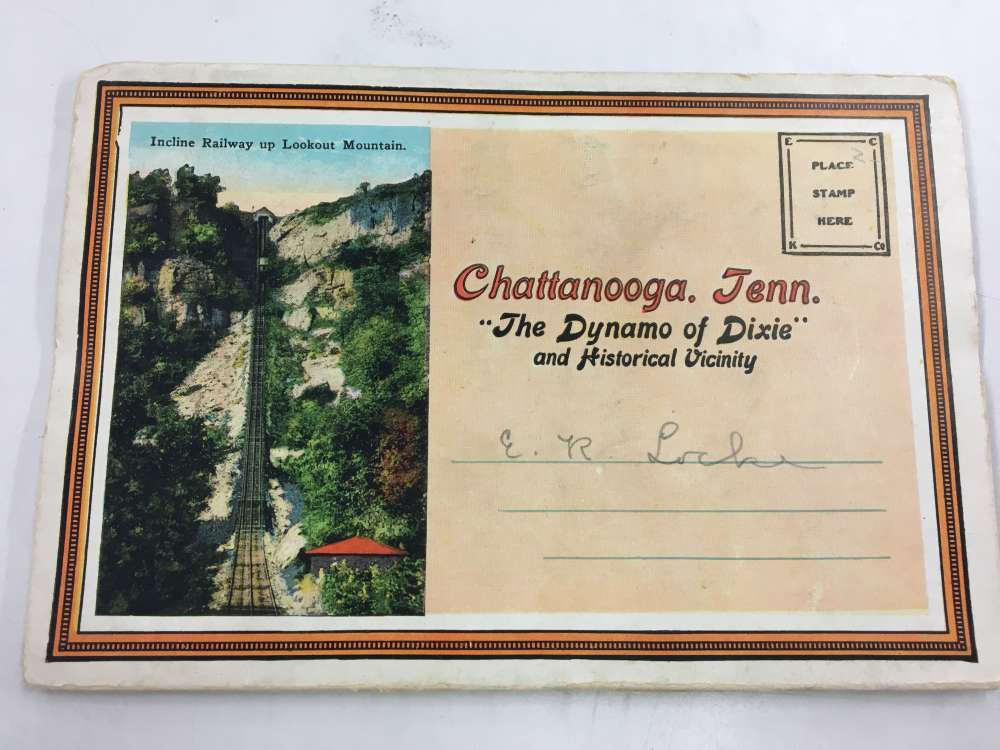 Incline Railway up Lookout Mountain.
E C
PLACE
STAMP
HERE
K Co
Chattanooga. Tenn.
"The Dynamo of Dixie"
and Historical Vicinity
E. R. Locke